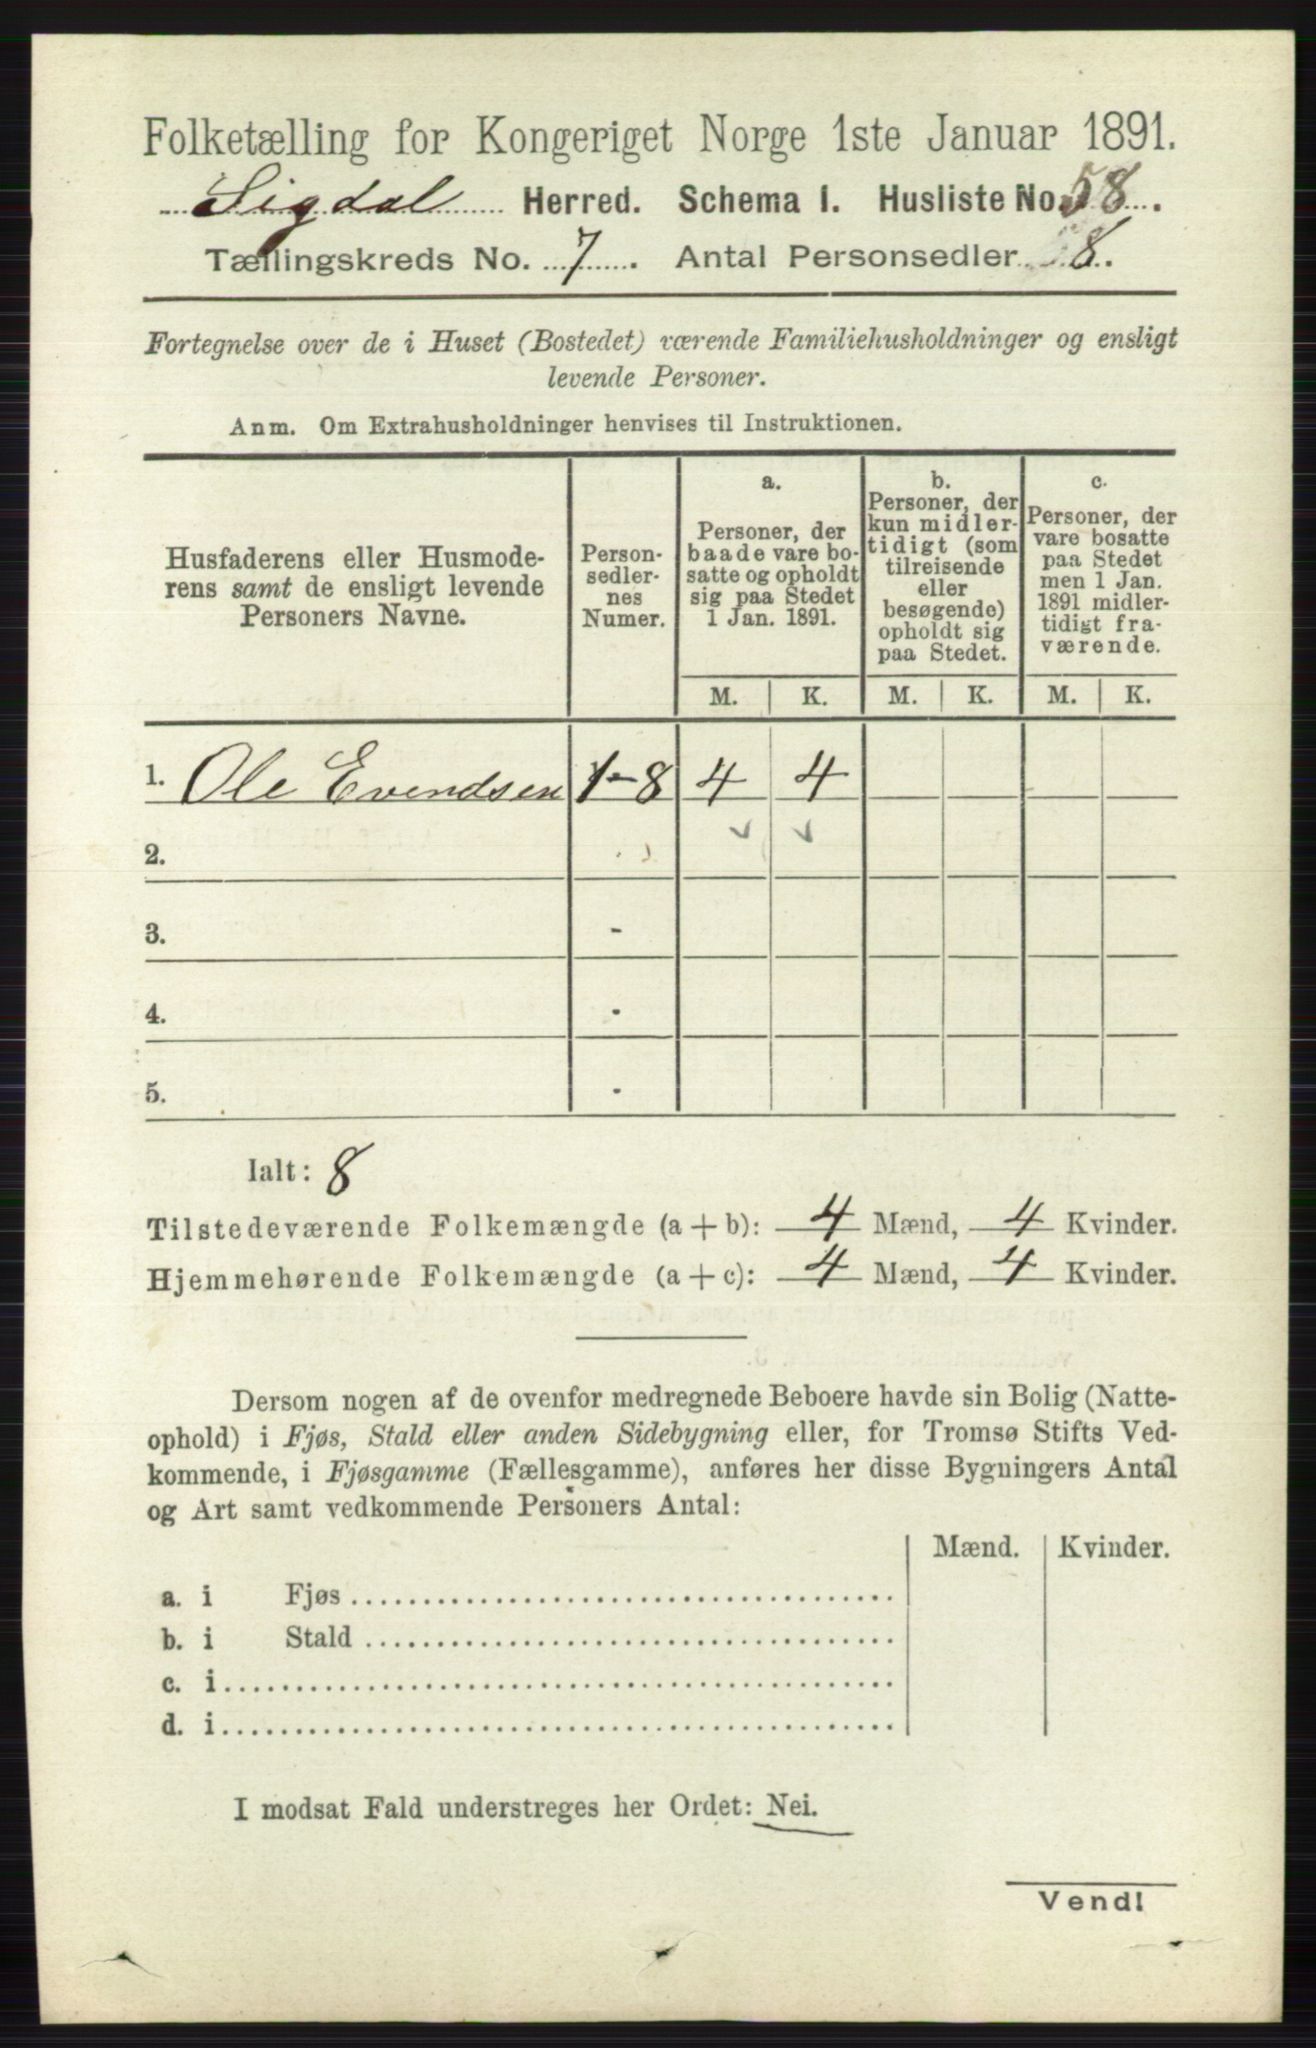 Folketælling for Kongeriget Norge 1ste Januar 1891.
Sigdal Herred. Schema I. Husliste No. 58.
Tællingskreds No. 7. Antal Personsedler 8.
Fortegnelse over de i Huset (Bostedet) værende Familiehusholdninger og ensligt
levende Personer.
Anm. Om Extrahusholdninger henvises til Instruktionen.
Husfaderens eller Husmode-
rens samt de ensligt levende
Personers Navne.
Person-
sedler-
nes
Numer.
a.
Personer, der
baade vare bo-
satte og opholdt
sig paa Stedet
1 Jan. 1891.
b.
Personer, der
kun midler-
tidigt (som
tilreisende
eller
besøgende)
opholdt sig
paa Stedet.
c.
Personer, der
vare bosatte
paa Stedet
men 1 Jan.
1891 midler-
tidigt fra-
værende.
M. K. M. K. M. K.
1. Ole Evendsen 1-8 4 4
2.
3. -
4. -
5. -
Ialt: 8
Tilstedeværende Folkemængde (a + b): 4 Mænd, 4 Kvinder.
Hjemmehørende Folkemængde (a + c): 4 Mænd, 4 Kvinder.
Dersom nogen af de ovenfor medregnede Beboere havde sin Bolig (Natte-
ophold) i Fjøs, Stald eller anden Sidebygning eller, for Tromsø Stifts Ved-
kommende, i Fjøsgamme (Fællesgamme), anføres her disse Bygningers Antal
og Art samt vedkommende Personers Antal:
Mænd. Kvinder.
a. i Fjøs
b. i Stald
c. i
d. i
I modsat Fald understreges her Ordet: Nei.
Vend!